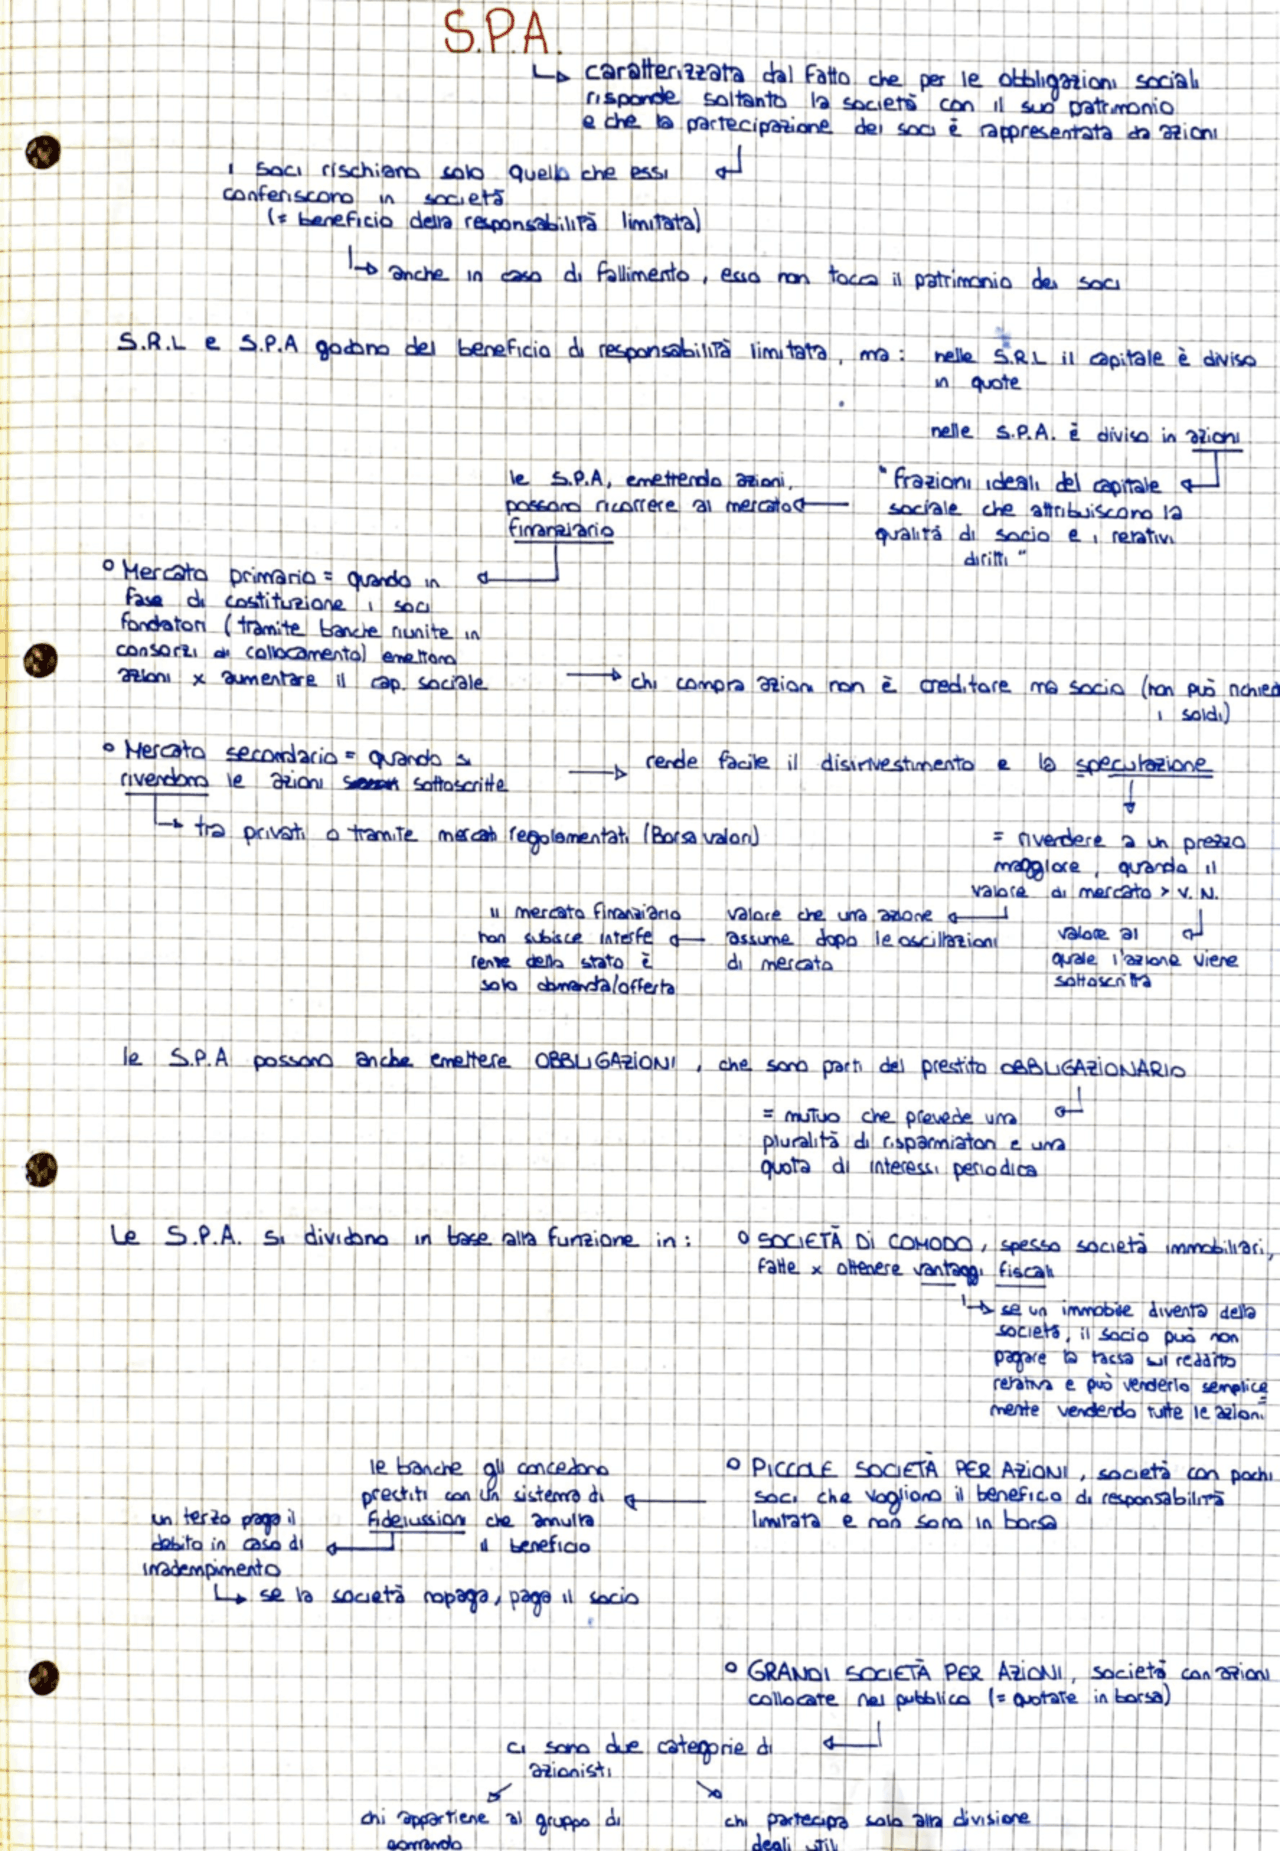 S.P.A.
caratterizzata dal fatto che per le obbligazioni sociali
risponde soltanto la società con il suo patrimonio
e che la partecipazione dei soci è rappresentata da azioni
i soci rischiano solo quello che essi
conferiscono in società
(= beneficio della responsabilità limitata)
anche in caso di fallimento, esso non tocca il patrimonio dei soci
S.R.L e S.P.A godono del beneficio di responsabilità limitata, ma:
nelle S.R.L il capitale è diviso
in quote
nelle S.P.A. è diviso in azioni
"frazioni ideali del capitale
sociale che attribuiscono la
qualità di socio e i relativi
diritti"
le S.P.A, emettendo azioni,
possono ricorrere al mercato
finanziario
Mercato primario = quando in
fase di costituzione i soci
fondatori (tramite banche riunite in
consorzi di collocamento) emettono
azioni x aumentare il cap. sociale
chi compra azioni non è creditore ma socio (non può richied
i soldi)
Mercato secondario = quando si
rivendono le azioni sottoscritte
rende facile il disinvestimento e la speculazione
tra privati o tramite mercati regolamentati (Borsa valori)
= rivendere a un prezzo
maggiore, quando il
valore di mercato > V.N.
valore al
quale l'azione viene
sottoscritta
valore che una azione
assume dopo le oscillazioni
di mercato
il mercato finanziario
non subisce interfe
renze dello stato è
solo domanda/offerta
le S.P.A possono anche emettere OBBLIGAZIONI, che sono parti del prestito OBBLIGAZIONARIO
= mutuo che prevede una
pluralità di risparmiatori e una
quota di interessi periodica
Le S.P.A. si dividono in base alla funzione in:
SOCIETÀ DI COMODO, spesso società immobiliari,
fatte x ottenere vantaggi fiscali
se un immobile diventa della
società, il socio può non
pagare la tassa sul reddito
relativa e può venderlo semplice=
mente vendendo tutte le azioni
PICCOLE SOCIETÀ PER AZIONI, società con pochi
soci che vogliono il beneficio di responsabilità
limitata e non sono in borsa
le banche gli concedono
prestiti con un sistema di
fideiussioni che annulla
il beneficio
un terzo paga il
debito in caso di
inadempimento
se la società nopaga, paga il socio
GRANDI SOCIETÀ PER AZIONI, società con azioni
collocate nel pubblico (= quotate in borsa)
ci sono due categorie di
azionisti
chi appartiene al gruppo di
comando
chi partecipa solo alla divisione
degli utili